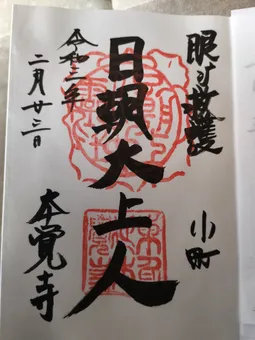 眼病救護
小町
日朝大上人
令和三年
二月廿三日
本覚寺